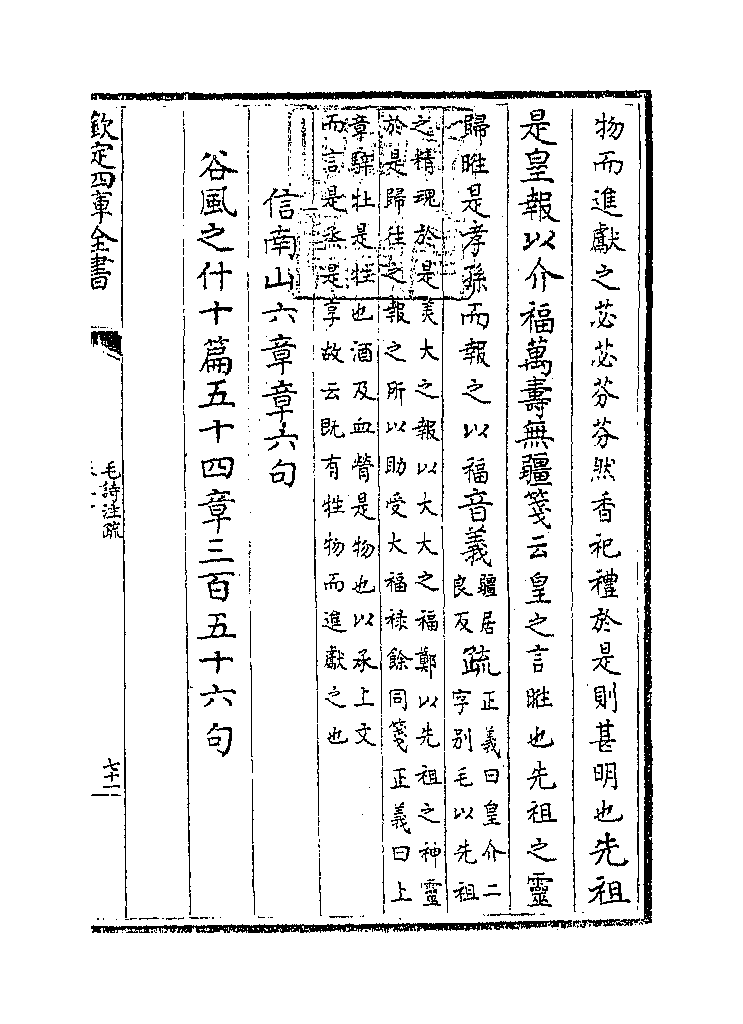 物而進獻之苾苾芬芬然香祀禮於是則甚明也先祖
是皇報以介福萬壽無疆箋云皇之言暀也先祖之靈
歸暀是孝孫而報之以福音義
疆居
良反
疏
正義曰皇介二
字别毛以先祖
之精魂於是美大之報以大大之福鄭以先祖之神靈
於是歸往之報之所以助受大福禄餘同箋正義曰上
章騂牡是牲也酒及血膋是物也以承上文
而言是烝是享故云既有牲物而進獻之也
信南山六章章六句
谷風之什十篇五十四章三百五十六句
欽定四庫全書
毛詩注疏
七十一